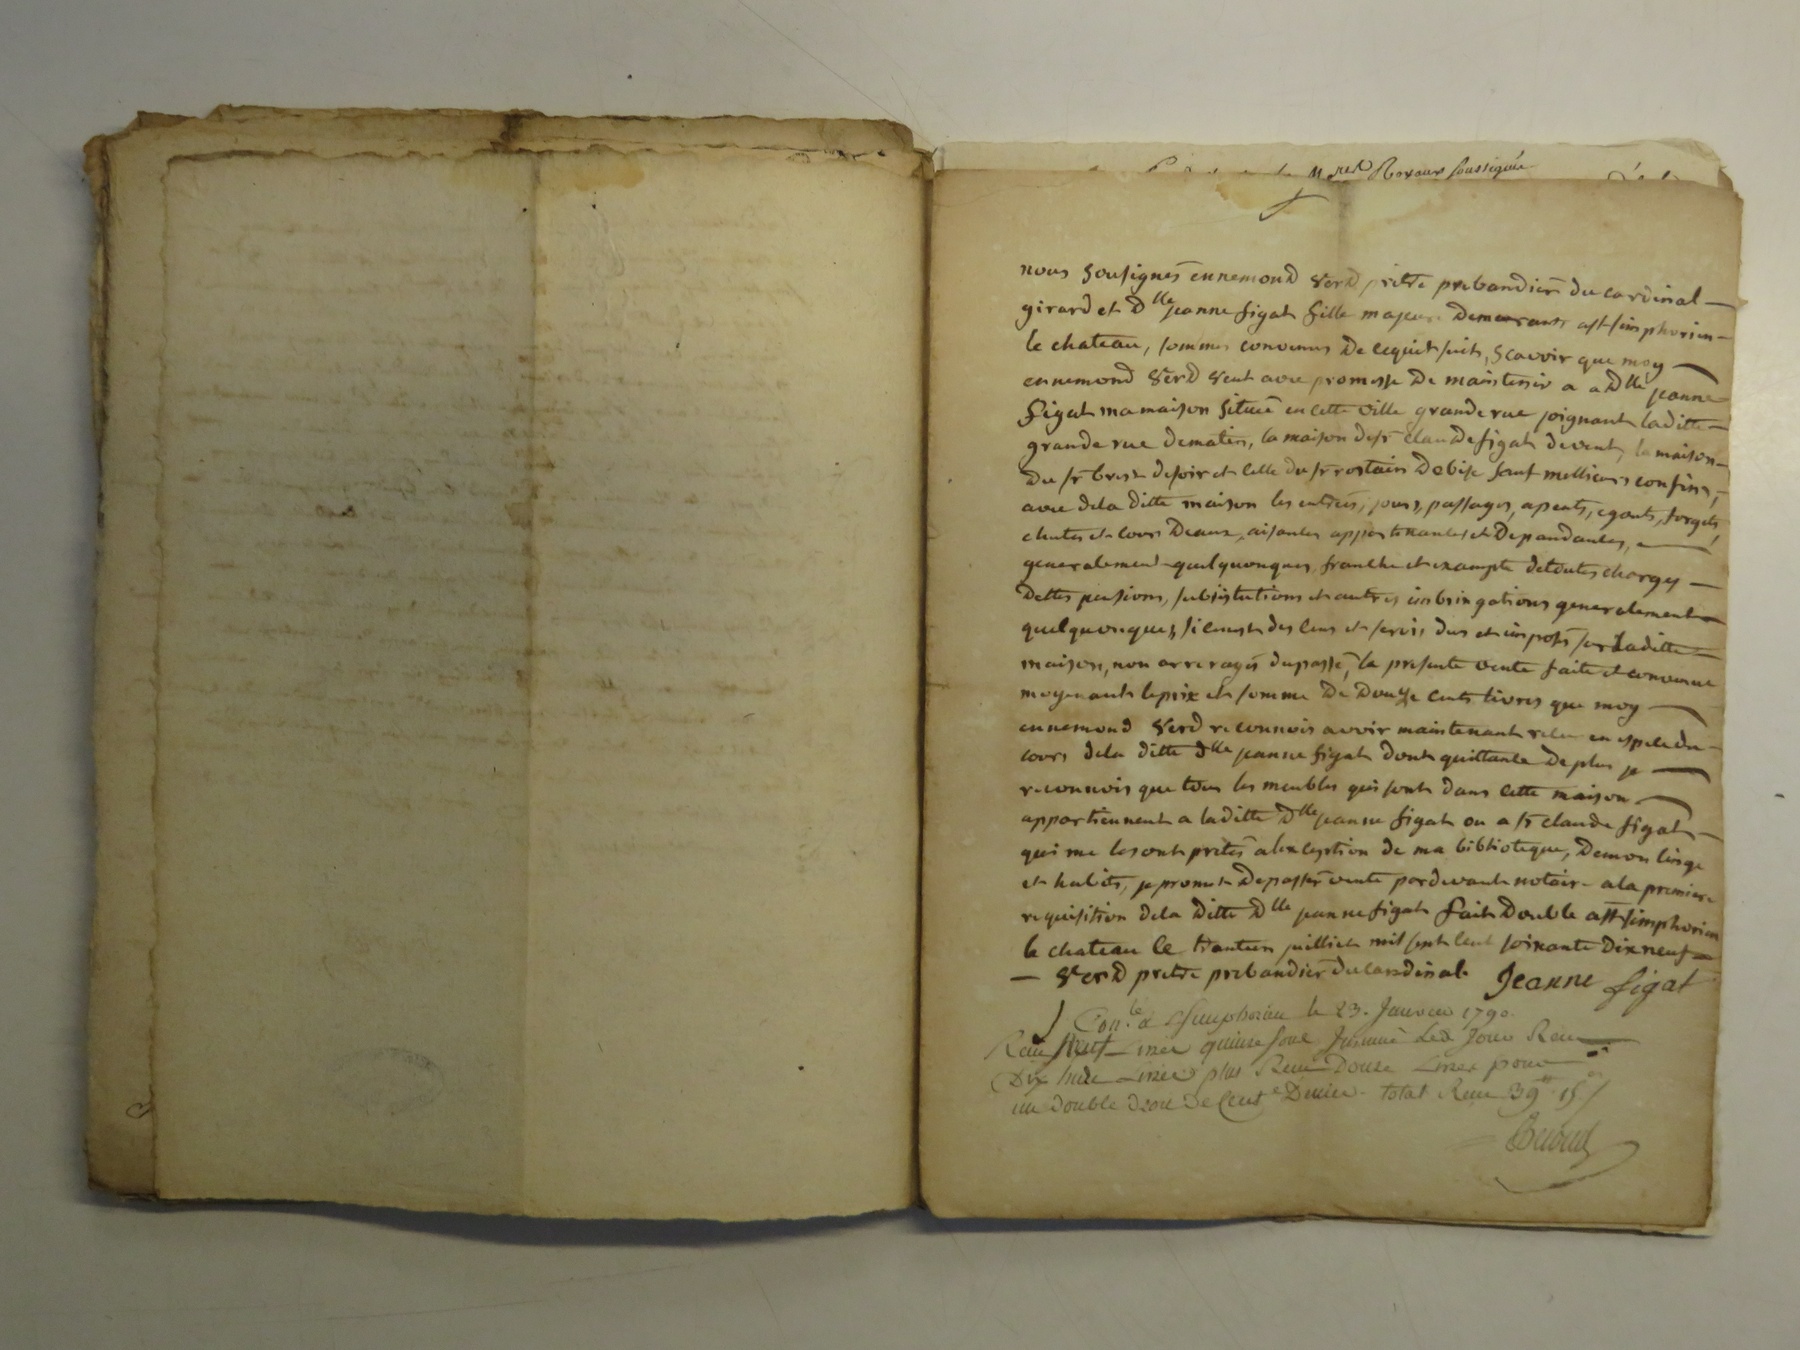 Rovaus soussignés
nous Sousignes ennemond Verd pretre prebandier du cardinal
girard et Dlle jeanne figat fille majeure demeurants a st simphorien
le chateau, sommes convenus de ce qui suit, scavoir que moy
ennemond Verd vent avec promesse de maintenir a a Dlle jeanne
figat ma maison située en cette ville grande rue joignant la ditte
grande rue de matin, la maison de sr claude figat de vent, la maison
du sr brest de soir et celle du sr rostain de bise sauf meilleurs confins,
avec de la ditte maison les entrées, jours, passages, apents, egouts, forgets,
chutes et cours deaux, aisantes appartenantes et dependantes,
generalement quelquonques, franche et exampte de toutes charges
dettes pensions, substitutions et autres imbringations generalement
quelquonques, si ce nest des cens et servis dus et imposés sur la ditte
maison, non arreragés du passé, la presente vente faite et convenue
moyenant le prix et somme de douze cents livres que moy
ennemond Verd reconnois avoir maintenant recu en espece du
cours de la ditte dlle jeanne figat dont quittance de plus je
reconnois que tous les meubles qui sont dans cette maison
appartiennent a la ditte Dlle jeanne figat ou a sr claude figat
qui me les ont pretés a lexception de ma biblioteque, de mon linge
et habits, je promet de passer vente par devant notaire a la premiere
requisition de la ditte Dlle jeanne figat fait double a st simphorien
le chateau le trantun juilliet mil sept cent soixante dix neuf
Verd pretre prebandier du cardinal Jeanne figat
Con.lé a st simphorien le 23. Janvier 1790
Recu Neuf Livres quinze sous Insinué led Jour Recu
Dix huit Livres plus Recu Douze Livres pour
un double droit de Cent.e Denier. total Recu 39 15